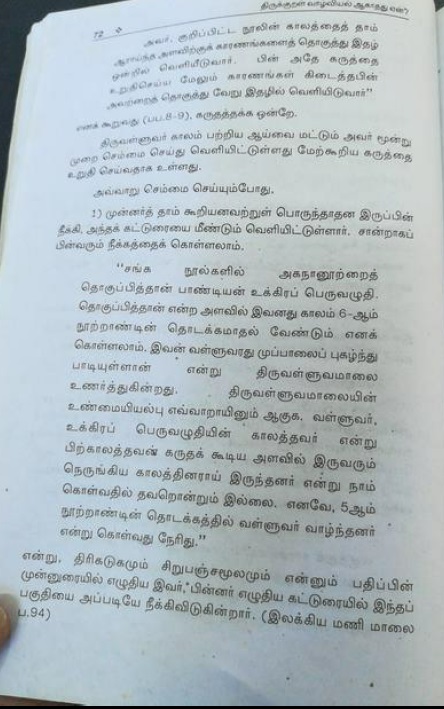 திருக்குறள் வாழ்வியல் ஆகாதது ஏன்?
72 ❖
அவர், குறிப்பிட்ட நூலின் காலத்தைத் தாம்
ஆராய்ந்த அளவிற்குக் காரணங்களைத் தொகுத்து இதழ்
ஒன்றில் வெளியிடுவார். பின் அதே கருத்தை
உறுதிசெய்ய மேலும் காரணங்கள் கிடைத்தபின்
அவற்றைத் தொகுத்து வேறு இதழில் வெளியிடுவார்"
எனக் கூறுவது (பப.8-9), கருதத்தக்க ஒன்றே.
திருவள்ளுவர் காலம் பற்றிய ஆய்வை மட்டும் அவர் மூன்று
முறை செம்மை செய்து வெளியிட்டுள்ளது மேற்கூறிய கருத்தை
உறுதி செய்வதாக உள்ளது.
அவ்வாறு செம்மை செய்யும்போது,
1) முன்னர்த் தாம் கூறியனவற்றுள் பொருந்தாதன இருப்பின்
நீக்கி, அந்தக் கட்டுரையை மீண்டும் வெளியிட்டுள்ளார். சான்றாகப்
பின்வரும் நீக்கத்தைக் கொள்ளலாம்.
"சங்க நூல்களில் அகநானூற்றைத்
தொகுப்பித்தான் பாண்டியன் உக்கிரப் பெருவழுதி.
தொகுப்பித்தான் என்ற அளவில் இவனது காலம் 6-ஆம்
நூற்றாண்டின் தொடக்கமாதல் வேண்டும் எனக்
கொள்ளலாம். இவன் வள்ளுவரது முப்பாலைப் புகழ்ந்து
பாடியுள்ளான் என்று திருவள்ளுவமாலை
உணர்த்துகின்றது. திருவள்ளுவமாலையின்
உண்மையியல்பு எவ்வாறாயினும் ஆகுக. வள்ளுவர்,
உக்கிரப் பெருவழுதியின் காலத்தவர் என்று
பிற்காலத்தவன் கருதக் கூடிய அளவில் இருவரும்
நெருங்கிய காலத்தினராய் இருந்தனர் என்று நாம்
கொள்வதில் தவறொன்றும் இல்லை. எனவே, 5ஆம்
நூற்றாண்டின் தொடக்கத்தில் வள்ளுவர் வாழ்ந்தனர்
என்று கொள்வது நேரிது."
என்று, திரிகடுகமும் சிறுபஞ்சமூலமும் என்னும் பதிப்பின்
முன்னுரையில் எழுதிய இவர், பின்னர் எழுதிய கட்டுரையில் இந்தப்
பகுதியை அப்படியே நீக்கிவிடுகின்றார். (இலக்கிய மணி மாலை
ப.94)